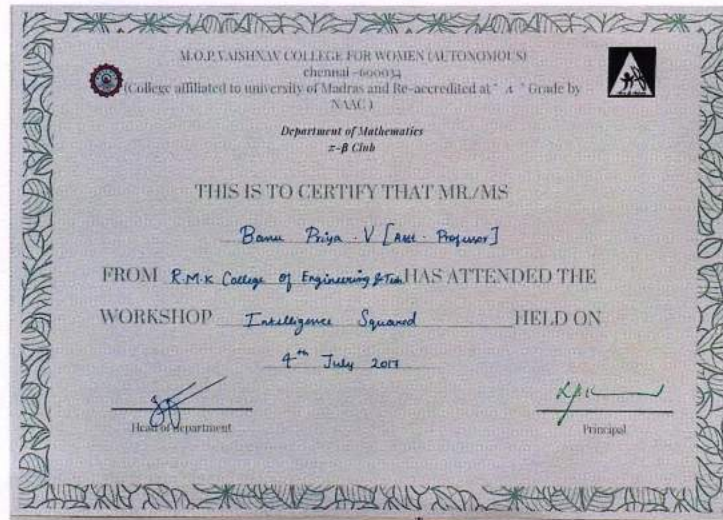 M.O.P. VAISHNAV COLLEGE FOR WOMEN (AUTONOMOUS)
chennai -600034
(College affiliated to university of Madras and Re-accredited at " A " Grade by
NAAC )
Department of Mathematics
π-β Club
THIS IS TO CERTIFY THAT MR/MS
Banu Priya . V [Asst. Professor]
FROM R.M.K College of Engineering & Tech HAS ATTENDED THE
WORKSHOP Intelligence Squared HELD ON
4th July 2017
Head of department
Principal